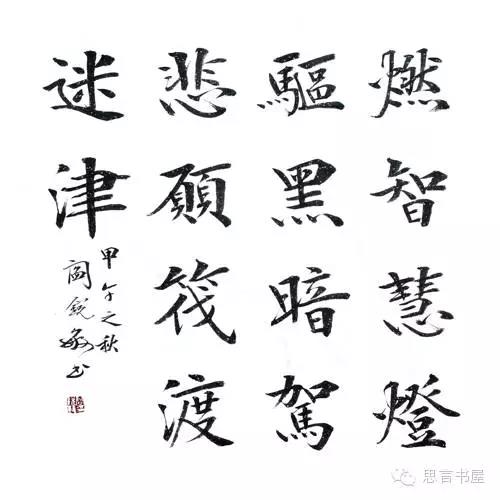 燃智慧燈
驅黑暗駕
悲願筏渡
迷津
甲午之秋
閻銳敏书
思言书屋